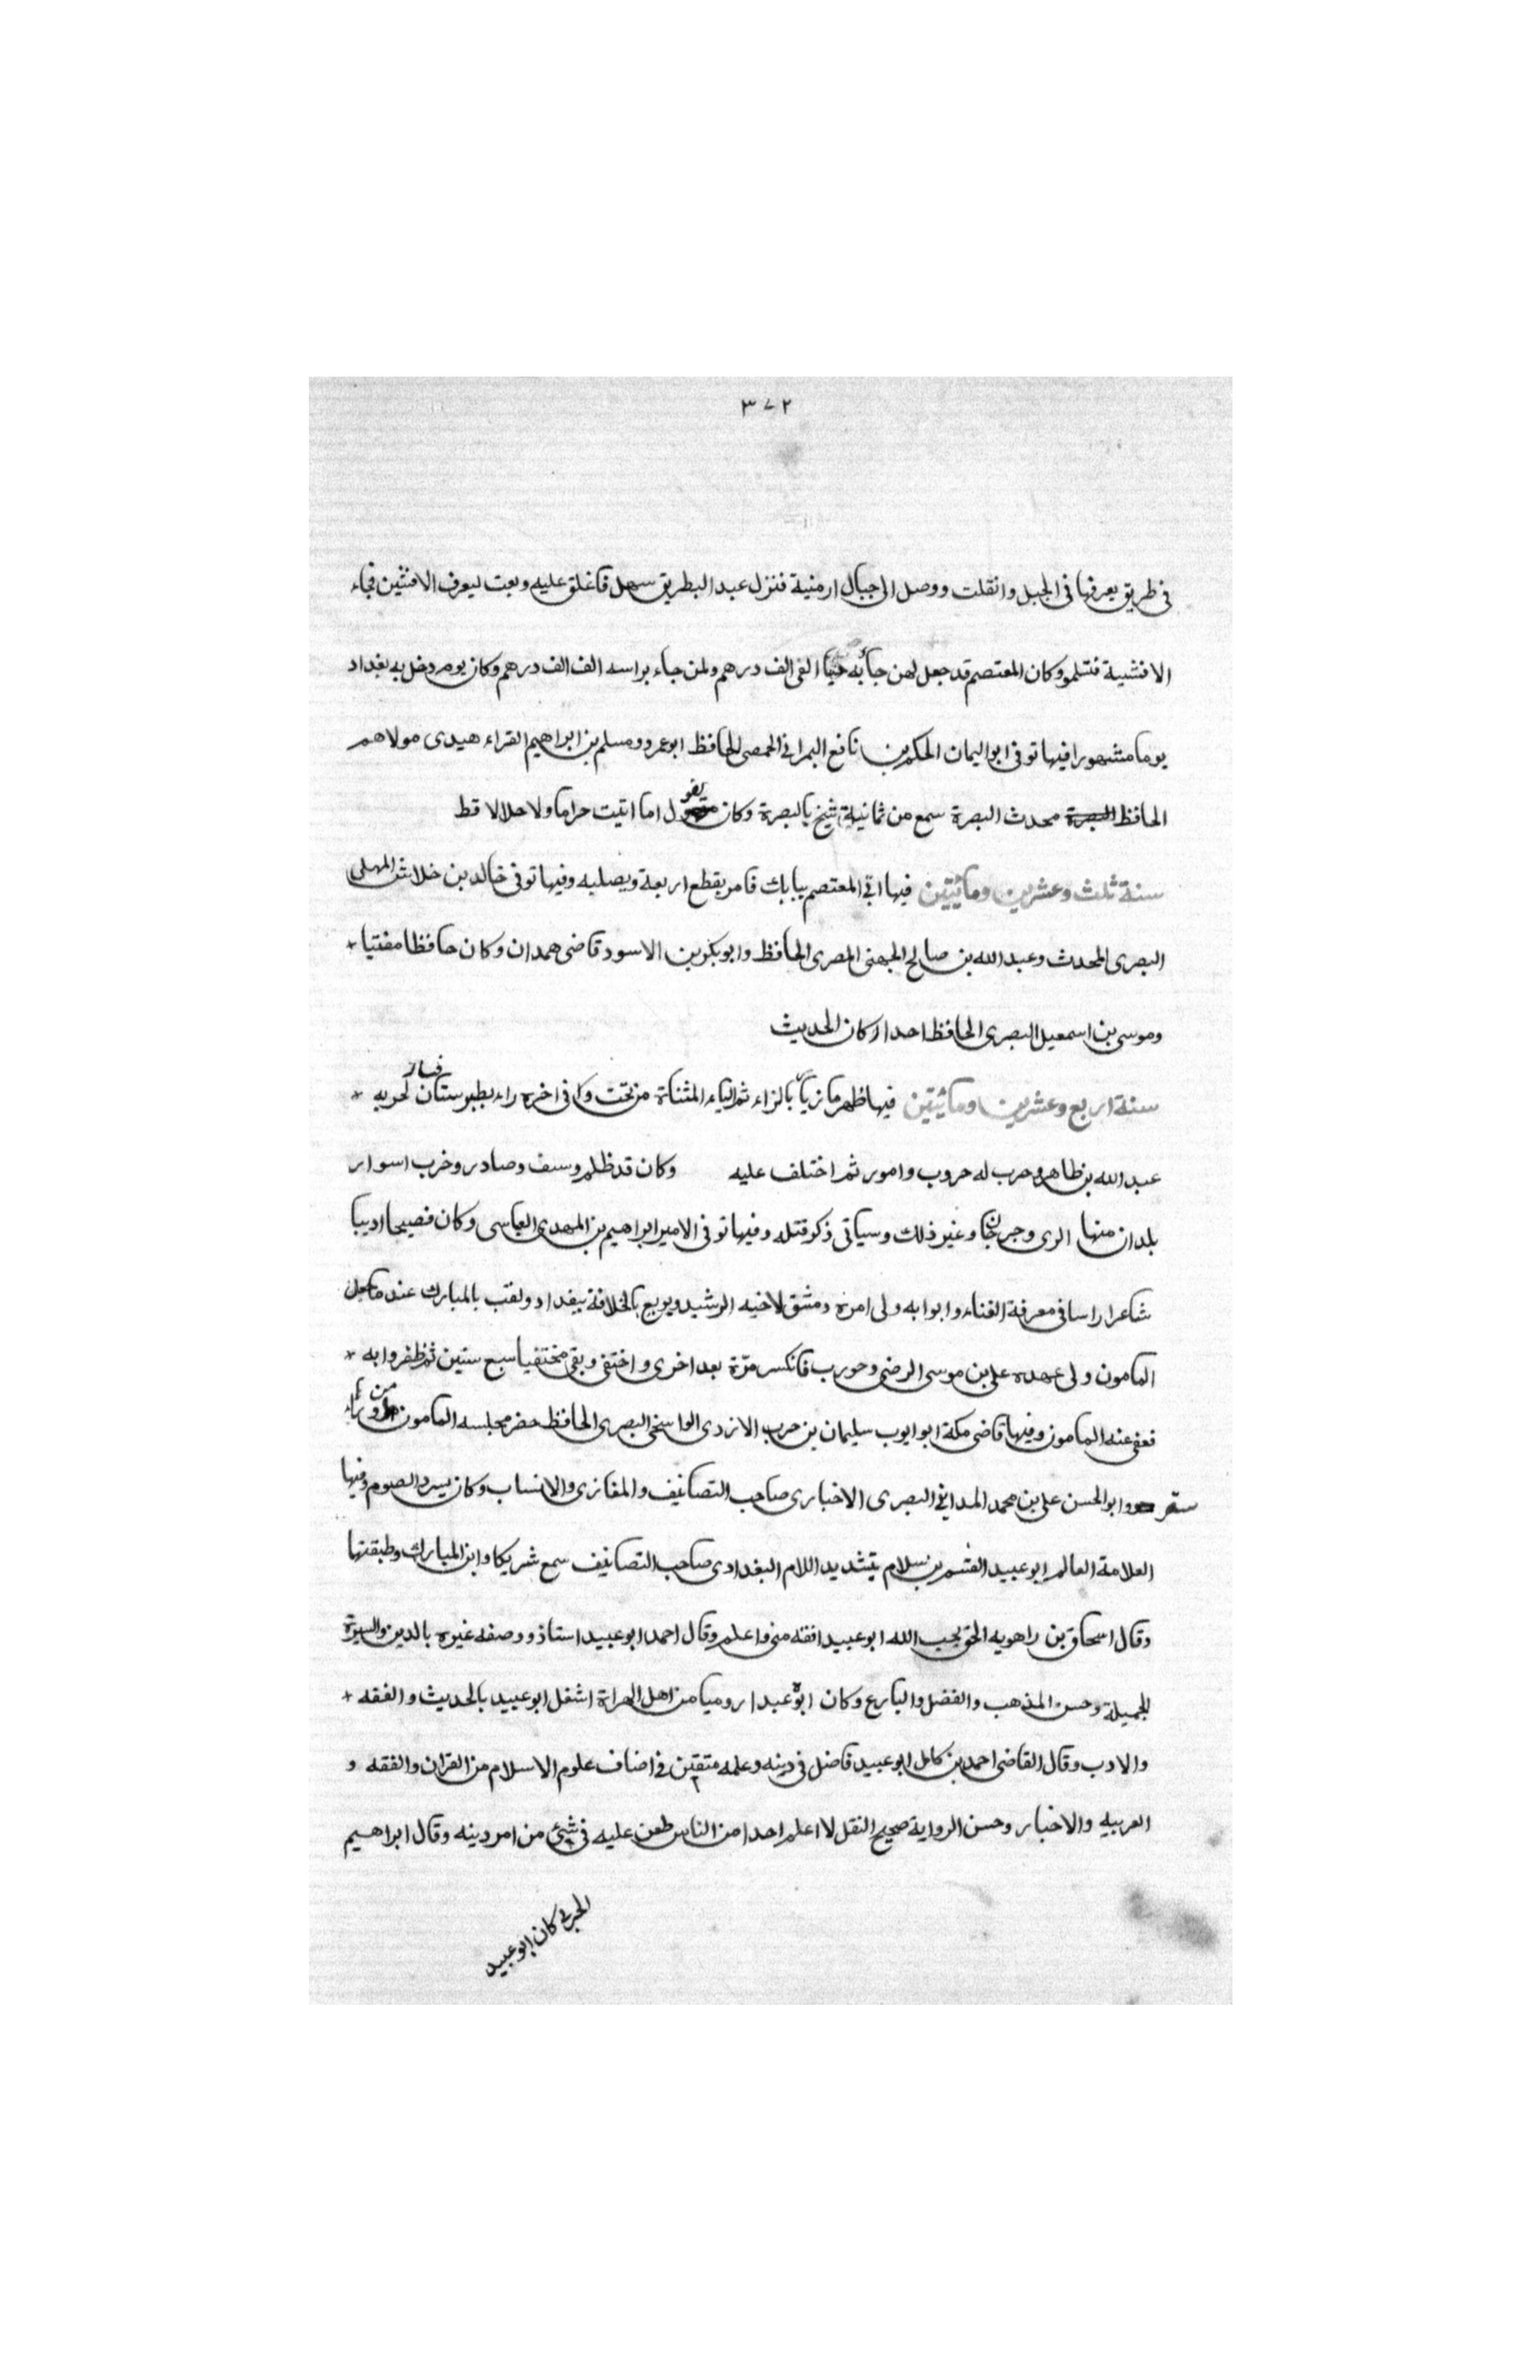 ٣٧٢
في طريق يعرفها في الجبل وانقلت ووصل الى جبال ارمنية فنزل عبد البطريق سهل فاغلق عليه وبعث ليعرف الافشين فجاء
الافشية فتسلمو وكان المعتصم قد جعل لمن جاء به حيا الفي الف درهم ولمن جاء براسه الف الف درهم وكان يوم دخل به بغداد
يوما مشهورا فيها توفي ابو اليمان الحكم بن نافع البهراني الحمصي الحافظ ابو عمرو ومسلم بن ابراهيم القراء هيدي مولاهم
الحافظ محدث البصرة سمع من ثمانية شيخ بالبصرة وكان يقول اما اتيت حراما ولا حلالا قط
سنة ثلث وعشرين ومائتين فيها اتي المعتصم ببابك فامر بقطع اربعة ويصلبه وفيها توفي خالد بن خلاش المهلي
البصري المحدث وعبد الله بن صالح الجهني المصري الحافظ وابو بكر بن الاسود قاضي همدان وكان حافظا مفتيا
وموسى بن اسمعيل البصري الحافظ احد اركان الحديث
سنة اربع وعشرين ومائتين فيها ظهر مازيا بالزاء ثم الياء المثناة من تحت وا في اخره راء بطبرستان فسار لحربه
عبد الله بن طاهر وحرب له حروب وامور ثم اختلف عليه وكان قد ظلم وسف وصادر وخرب اسوار
بلدان منها الري وجرجان وغير ذلك وسياتي ذكر قتله وفيها توفي الامير ابراهيم بن المهدي العباسي وكان فصيحا اديبا
شاعرا راسا في معرفة الغناء وابوابه ولى امرة دمشق لاخيه الرشيد وبويع بالخلافة ببغداد ولقب بالمبارك عند ما جعل
المامون ولى عهده على بن موسى الرضي وحورب فانكسر مرّة بعد اخرى واختفى وبقي مختفيا سبع سنين ثم ظفروا به
فعفى عنه المامون وفيها قاضي مكة ابو ايوب سليمان بن حرب الازدي الواسخي البصري الحافظ حضر مجلسه المامون من وراء
ستر وابو الحسن على بن محمد المدايني البصري الاخباري صاحب التصانيف والمغازي والانساب وكان يسرد الصوم وفيها
العلامة العالم ابو عبيد القسم بن سلام بتشديد اللام البغدادي صاحب التصانيف سمع شريكا وابن المبارك وطبقتهما
وقال اسحاق بن راهويه الحق يحب الله ابو عبيد افقه مني واعلم وقال احمد ابو عبيد استاذ ووصفه غيره بالدين والسيرة
الجميلة وحسن المذهب والفضل والبارع وكان ابوه عبدا روميا من اهل الهراة اشغل ابو عبيد بالحديث والفقه
والادب وقال القاضي احمد بن كامل ابو عبيد فاضل في دينه وعلمه متقن في اضاف علوم الاسلام من القران والفقه و
العربيه والاخبار وحسن الرواية صحيح النقل لا اعلم احدا من الناس طعن عليه في شئ من امر دينه وقال ابراهيم
الحربي كان ابو عبيد